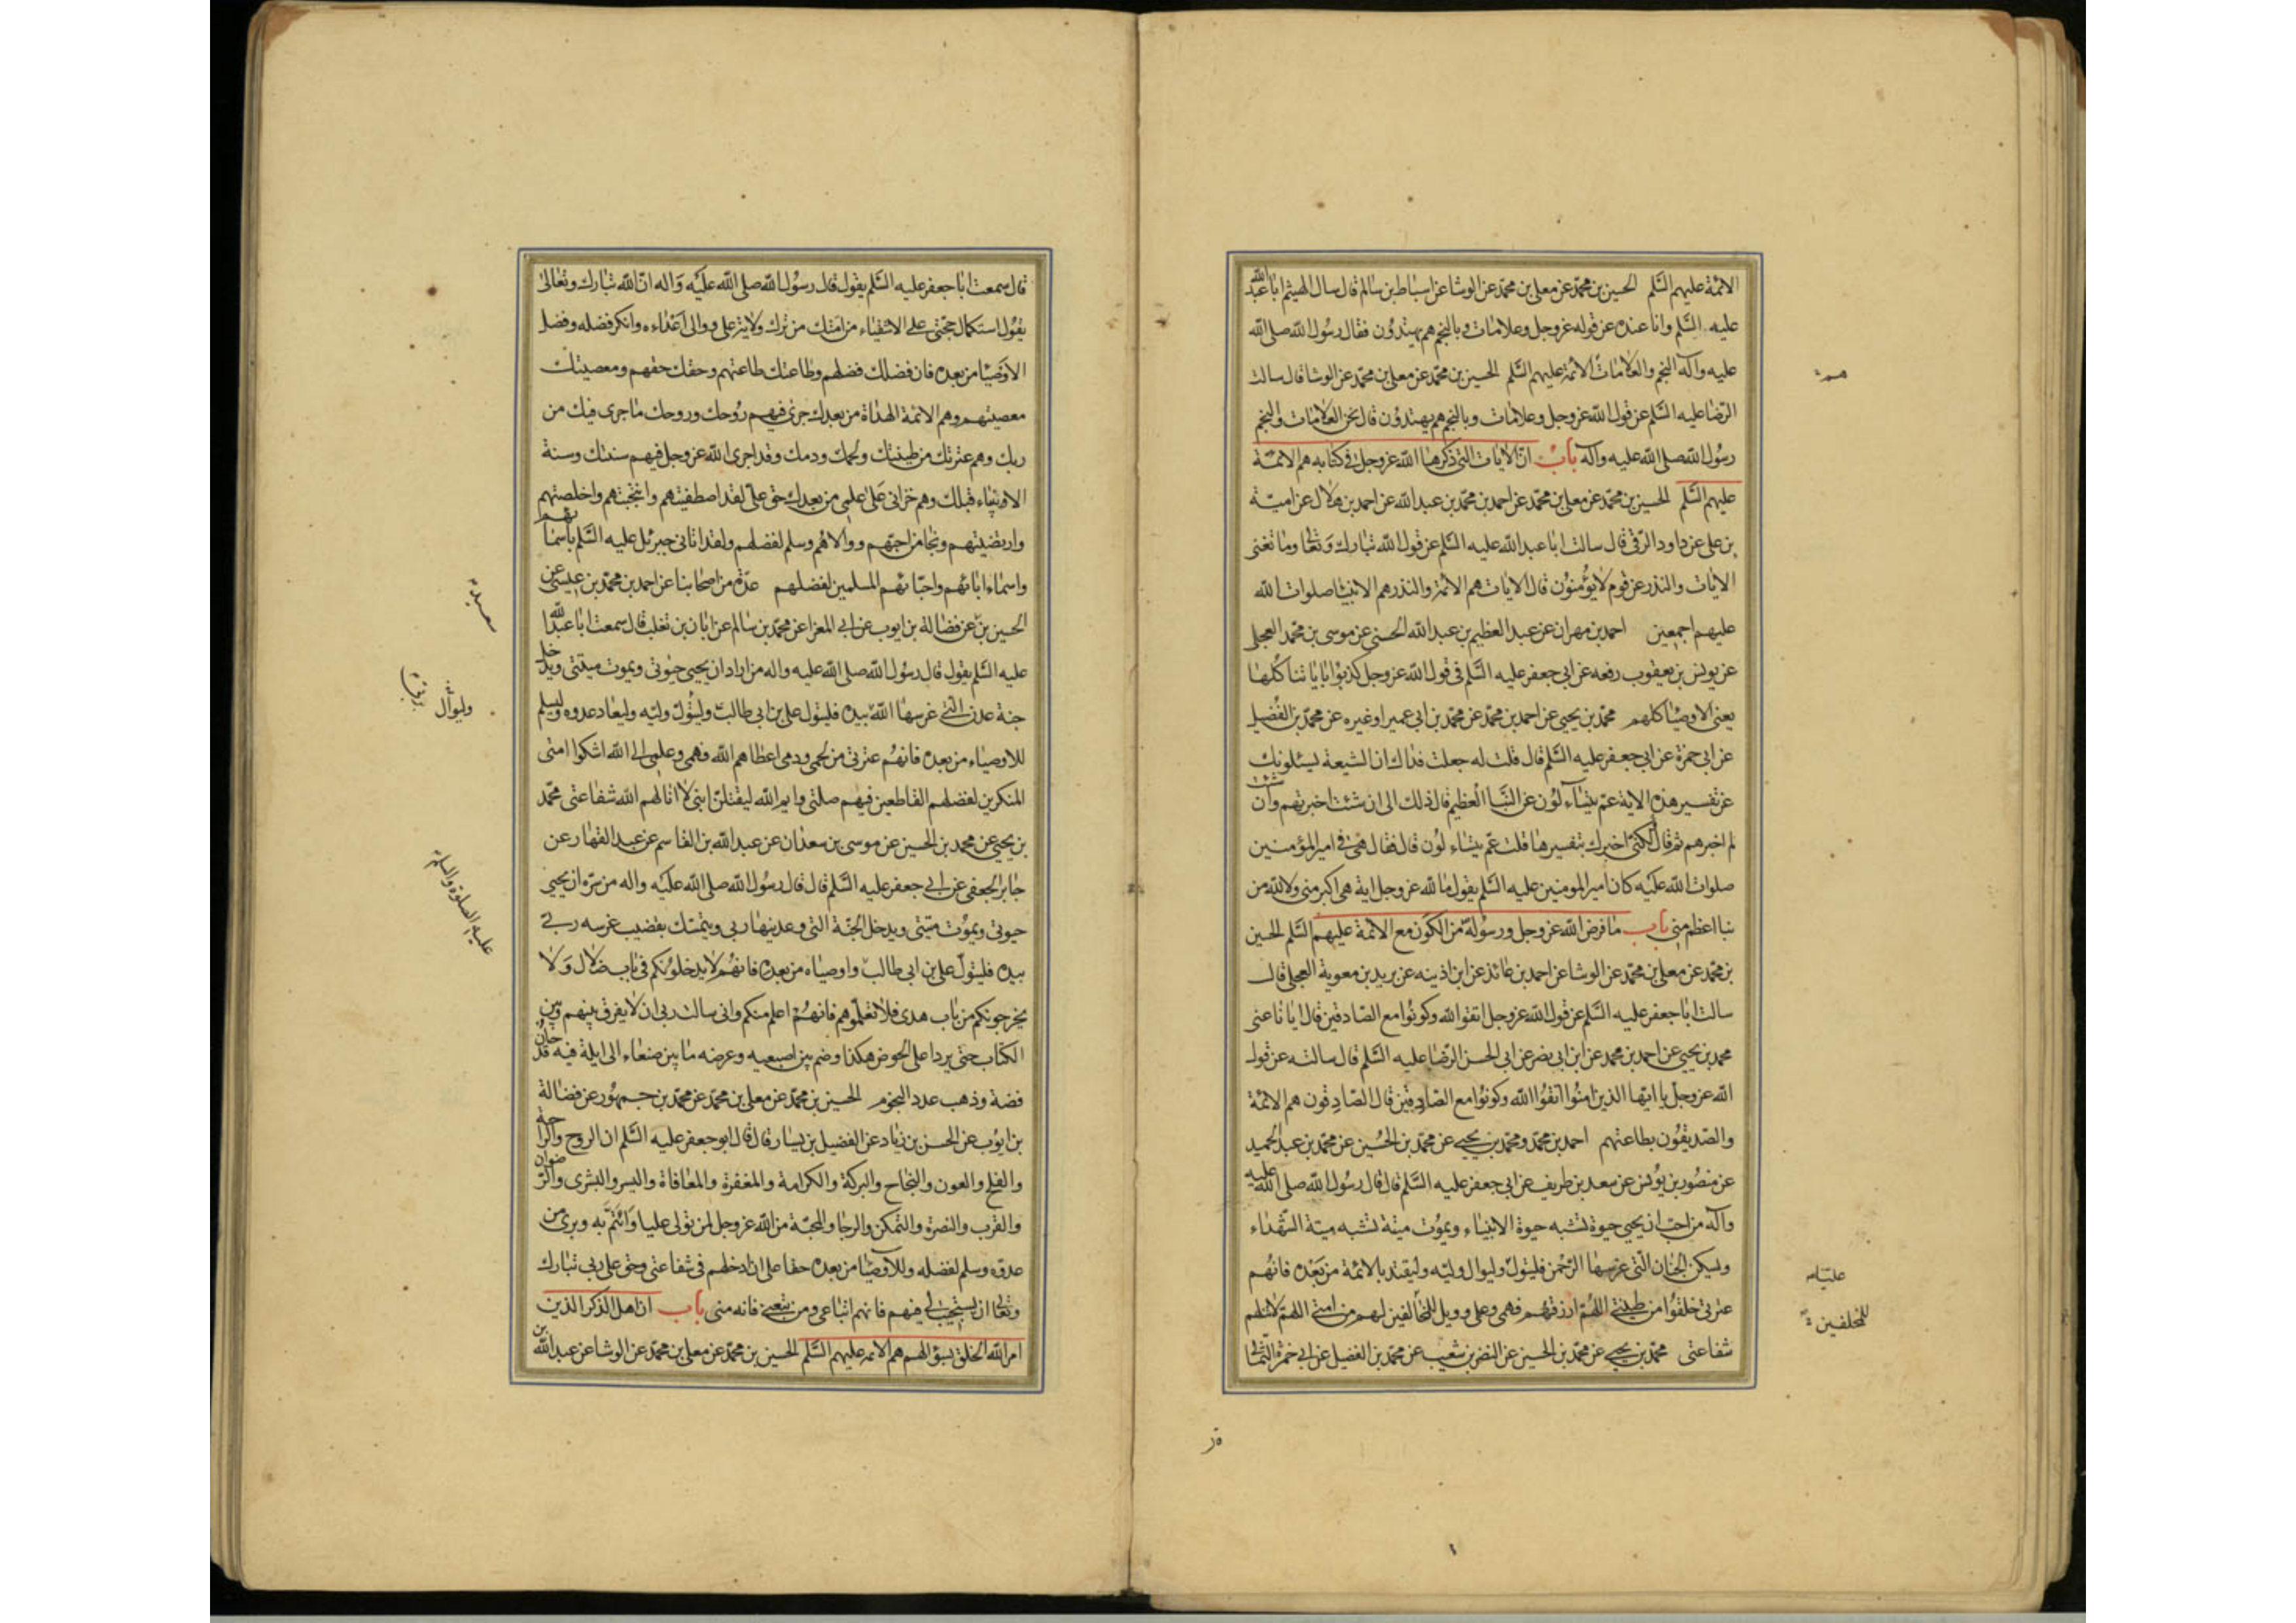 الائمة عليهم السلم الحسين بن محمد عن معلى بن محمد عن الوشا عن اسباط بن سالم قال سال الهيثم ابا عبد الله
عليه السلم وانا عنده عن قوله عز وجل وعلامات وبالنجم هم يهتدون فقال رسول الله صلى الله
عليه وآله النجم والعلامات الائمة عليهم السلم الحسين بن محمد عن معلى بن محمد عن الوشا قال سالت
الرضا عليه السلم عن قول الله عز وجل وعلامات وبالنجم هم يهتدون قال نحن العلامات والنجم
رسول الله صلى الله عليه وآله باب ان الايات التي ذكرها الله عز وجل في كتابه هم الائمة
عليهم السلم الحسين بن محمد عن معلى بن محمد عن احمد بن محمد بن عبد الله عن احمد بن هلال عن امية
بن علي عن داود الرقي قال سالت ابا عبد الله عليه السلم عن قول الله تبارك وتعالى وما تغنى
الايات والنذر عن قوم لا يؤمنون قال الايات هم الائمة والنذر هم الانبيا صلوات الله
عليهم اجمعين احمد بن مهران عن عبد العظيم بن عبد الله الحسنى عن موسى بن محمد العجلى
عن يونس بن يعقوب رفعه عن ابى جعفر عليه السلم فى قول الله عز وجل كذبوا باياتنا كلها
يعنى الاوصيا كلهم محمد بن يحيى عن احمد بن محمد عن محمد بن ابى عمير او غيره عن محمد بن الفضيل
عن ابى حمزة عن ابى جعفر عليه السلم قال قلت له جعلت فداك ان الشيعة يسئلونك
عن تفسير هذه الاية عم يتساءلون عن النبا العظيم قال ذلك الى ان شئت اخبرتهم وان شئت
لم اخبرهم ثم قال لكنى اخبرك بتفسيرها قلت عم يتساءلون قال فقال هى فى امير المؤمنين
صلوات الله عليه كان امير المومنين عليه السلم يقول ما لله عز وجل اية هى اكبر منى ولا لله من
نبا اعظم منى باب ما فرض الله عز وجل ورسوله من الكون مع الائمة عليهم السلم الحسين
بن محمد عن معلى بن محمد عن الوشا عن احمد بن عائذ عن ابن اذينه عن بريد بن معوية العجلى قال
سالت ابا جعفر عليه السلم عن قول الله عز وجل اتقوا الله وكونوا مع الصادقين قال ايانا عنى
محمد بن يحيى عن احمد بن محمد عن ابن ابى نصر عن ابى الحسن الرضا عليه السلم قال سالته عن قول
الله عز وجل يا ايها الذين امنوا اتقوا الله وكونوا مع الصادقين قال الصادقون هم الائمة
والصديقون بطاعتهم احمد بن محمد ومحمد بن يحيى عن محمد بن الحسين عن محمد بن عبد الحميد
عن منصور بن يونس عن سعد بن طريف عن ابى جعفر عليه السلم قال قال رسول الله صلى الله عليه
وآله من احب ان يحيى حيوة تشبه حيوة الانبياء ويموت ميتة تشبه ميتة الشهداء
وليسكن الجنان التى غرسها الرحمن فليتول وليوال وليه وليقتد بالائمة من بعده فانهم
عترتى خلقوا من طينتى اللهم ارزقهم فهمى وعلمى وويل للمخالفين لهم من امتى اللهم لا تنلهم
شفاعتى محمد بن يحيى عن محمد بن الحسين عن النضر بن شعيب عن محمد بن الفضيل عن ابى حمزة الثمالى
عليا
للمخلفين
قال سمعت ابا جعفر عليه السلم يقول قال رسول الله صلى الله عليه واله ان الله تبارك وتعالى
يقول استكمال حجتى على الاشقياء من امتك من ترك ولاية على ووالى اعداءه وانكر فضله وفضل
الاوصيا من بعده فان فضلك فضلهم وطاعتك طاعتهم وحقك حقهم ومعصيتك
معصيتهم وهم الائمة الهداة من بعدك جرى فيهم روحك وروحك ما جرى فيك من
ربك وهم عترتك من طينتك ولحمك ودمك وقد اجرى الله عز وجل فيهم سنتك وسنة
الانبياء قبلك وهم خزانى على علمى من بعدك حق على لقد اصطفيتهم وانتجبتهم واخلصتهم
وارتضيتهم ونجا من احبهم ووالاهم وسلم لفضلهم ولقد اتانى جبرئل عليه السلم باسمائهم
واسماء ابائهم واحبائهم المسلمين لفضلهم عدة من اصحابنا عن احمد بن محمد بن عيسى عن
الحسين بن عن فضالة بن ايوب عن ابى المغرا عن محمد بن سالم عن ابان بن تغلب قال سمعت ابا عبد الله
عليه السلم يقول قال رسول الله صلى الله عليه واله من اراد ان يحيى حيوتى ويموت ميتتى ويدخل
جنة عدن التى غرسها الله بيده فليتول على بن ابى طالب وليتول وليه وليعاد عدوه وليسلم
للاوصياء من بعده فانهم عترتى من لحمى ودمى اعطاهم الله فهمى وعلمى الى الله اشكوا امتى
المنكرين لفضلهم القاطعين فيهم صلتى وايم الله ليقتلن ابنى لا انالهم الله شفاعتى محمد
بن يحيى عن محمد بن الحسين عن موسى بن سعدان عن عبد الله بن القاسم عن عبد القهار عن
جابر الجعفى عن ابى جعفر عليه السلم قال قال رسول الله صلى الله عليه واله من سره ان يحيى
حيوتى ويموت ميتتى ويدخل الجنة التى وعدنيها ربى ويتمسك بقضيب غرسه ربى
بيده فليتول على بن ابى طالب واوصياه من بعده فانهم لا يدخلونكم فى باب ضلال ولا
يخرجونكم من باب هدى فلا تعلموهم فانهم اعلم منكم وانى سالت ربى ان لا يفرق بينهم وبين
الكتاب حتى يردا على الحوض هكذا وضم بين اصبعيه وعرضه ما بين صنعاء الى ايلة فيه قدحان
فضة وذهب عدد النجوم الحسين بن محمد عن معلى بن محمد عن محمد بن جمهور عن فضالة
بن ايوب عن الحسن بن زياد عن الفضيل بن يسار قال قال ابو جعفر عليه السلم ان الروح والراحة
والفلج والعون والنجاح والبركة والكرامة والمغفرة والمعافاة واليسر والبشرى والرضوان
والقرب والنصرة والتمكن والرجا والمحبة من الله عز وجل لمن تولى عليا وائتم به وبرئ من
عدوه وسلم لفضله وللاوصيا من بعده حقا على ان ادخلهم فى شفاعتى وحق على ربى تبارك
وتعالى ان يستجيب لى فيهم فانهم اتباعى ومن تبعنى فانه منى باب ان اهل الذكر الذين
امر الله الخلق بسؤالهم هم الائمه عليهم السلم الحسين بن محمد عن معلى بن محمد عن الوشا عن عبد الله بن
سعيد
وليوال
عليه الصلوة والسلم